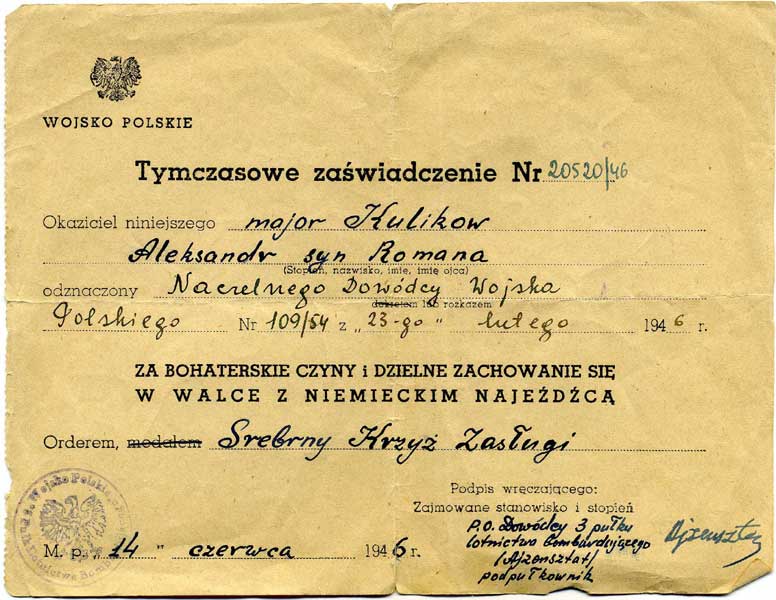 WOJSKO POLSKIE
Tymczasowe zaświadczenie Nr 20520/46
Okaziciel niniejszego major Kulikow
Aleksandr syn Romana
(Stopień, nazwisko, imię, imię ojca)
odznaczony Naczelnego Dowódcy Wojska
dekretem lub rozkazem
Polskiego Nr 109/54 z „23-go” lutego 1946 r.
ZA BOHATERSKIE CZYNY i DZIELNE ZACHOWANIE SIĘ
W WALCE Z NIEMIECKIM NAJEŹDŹCĄ
Orderem, medalem Srebrny Krzyż Zasługi
Podpis wręczającego:
Zajmowane stanowisko i stopień
P.O. Dowódcy 3 pułku
lotnictwa Bombardującego
(Ajzensztat)
podpułkownik
M. p. „14” czerwca 1946 r.
Wojsko Polskie